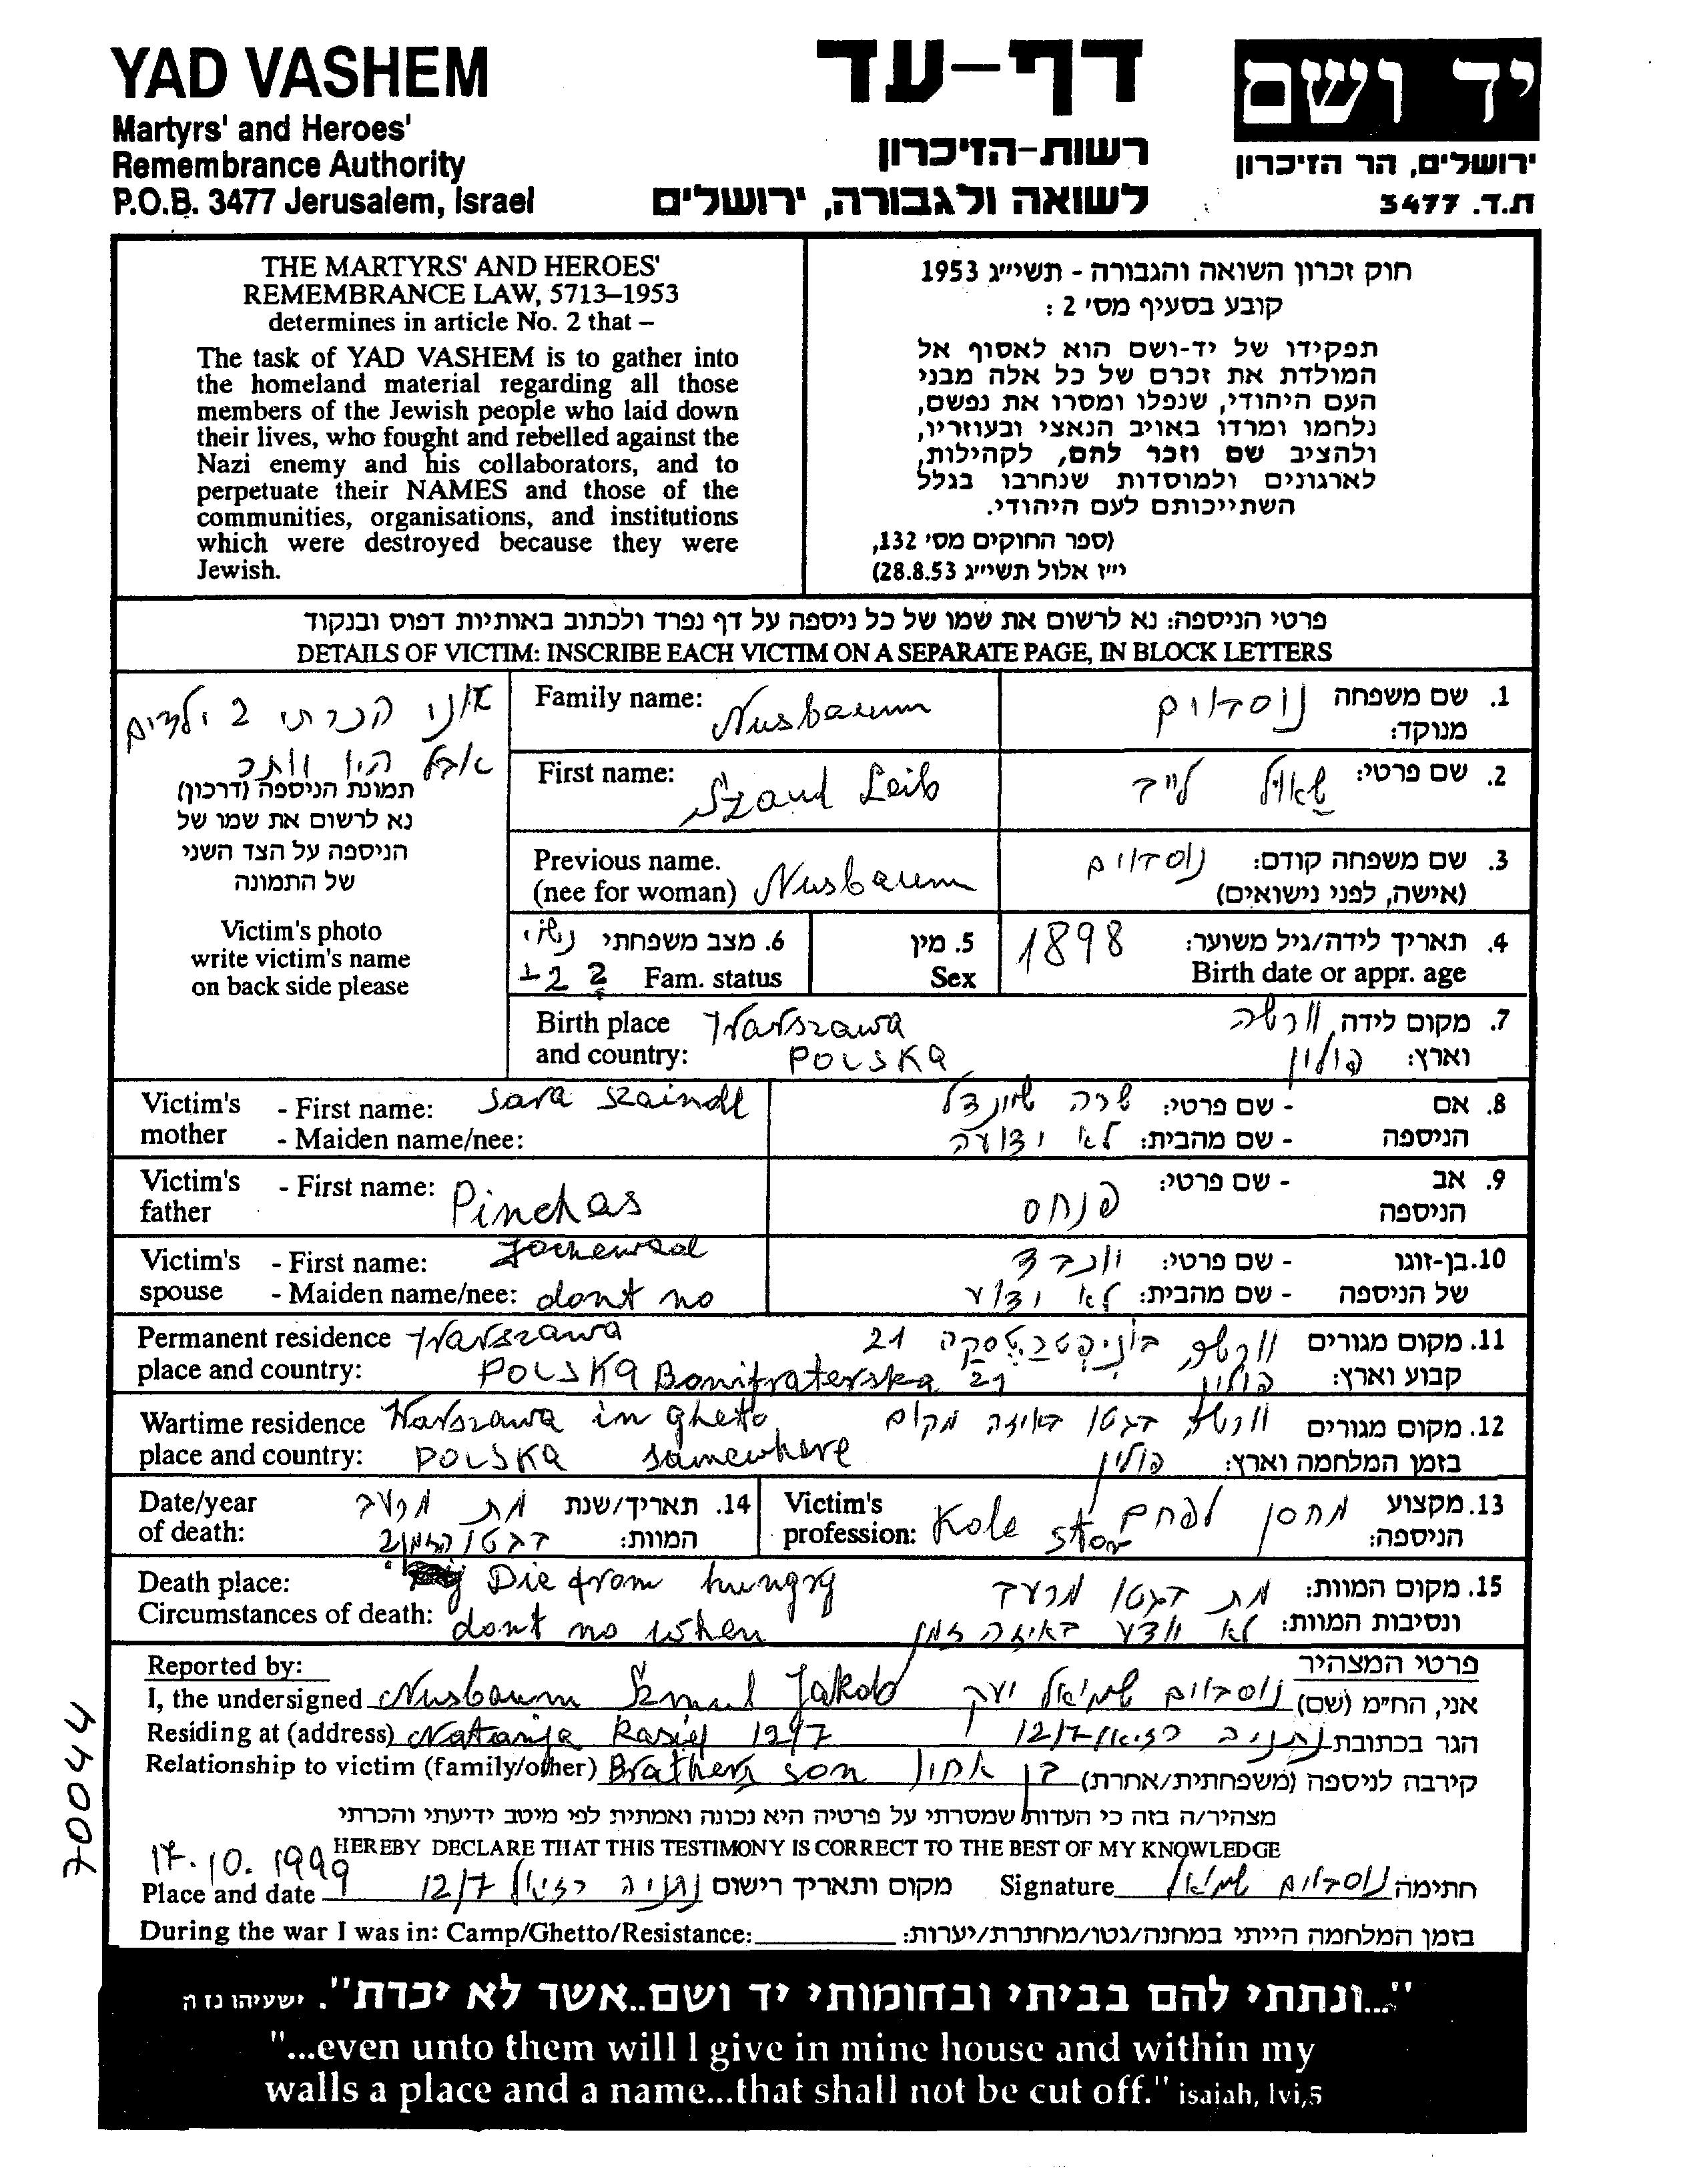 YAD VASHEM
Martyrs' and Heroes'
Remembrance Authority
P.O.B. 3477 Jerusalem, Israel
דף-עד
רשות-הזיכרון
לשואה ולגבורה, ירושלים
יד ושם
ירושלים, הר הזיכרון
ת.ד. 3477
THE MARTYRS' AND HEROES'
REMEMBRANCE LAW, 5713–1953
determines in article No. 2 that –
The task of YAD VASHEM is to gather into
the homeland material regarding all those
members of the Jewish people who laid down
their lives, who fought and rebelled against the
Nazi enemy and his collaborators, and to
perpetuate their NAMES and those of the
communities, organisations, and institutions
which were destroyed because they were
Jewish.
חוק זכרון השואה והגבורה - תשי"ג 1953
קובע בסעיף מס' 2 :
תפקידו של יד-ושם הוא לאסוף אל
המולדת את זכרם של כל אלה מבני
העם היהודי, שנפלו ומסרו את נפשם,
נלחמו ומרדו באויב הנאצי ובעוזריו,
ולהציב שם וזכר להם, לקהילות,
לארגונים ולמוסדות שנחרבו בגלל
השתייכותם לעם היהודי.
(ספר החוקים מס' 132,
י"ז אלול תשי"ג 28.8.53)
פרטי הניספה: נא לרשום את שמו של כל ניספה על דף נפרד ולכתוב באותיות דפוס ובנקוד
DETAILS OF VICTIM: INSCRIBE EACH VICTIM ON A SEPARATE PAGE, IN BLOCK LETTERS
אני הכרתי 2 ילדים
אבל היו יותר
תמונת הניספה (דרכון)
נא לרשום את שמו של
הניספה על הצד השני
של התמונה
Victim's photo
write victim's name
on back side please
Family name: Nusbaum
1. שם משפחה נוסבוים
מנוקד:
First name: Szaul Leib
2. שם פרטי: שאול לייב
Previous name. Nusbaum
(nee for woman)
3. שם משפחה קודם: נוסבוים
(אישה, לפני נישואים)
6. מצב משפחתי נשוי
Fam. status +2 ?
5. מין
Sex
4. תאריך לידה/גיל משוער: 1898
Birth date or appr. age
Birth place Warszawa
and country: POLSKA
7. מקום לידה וורשה
וארץ: פולין
Victim's - First name: Sara Szaindl
mother - Maiden name/nee:
8. אם - שם פרטי: שרה שיינדל
הניספה - שם מהבית: לא ידועה
Victim's - First name: Pinchas
father
9. אב - שם פרטי: פנחס
הניספה
Victim's - First name: Jochewed
spouse - Maiden name/nee: dont no
10. בן-זוגו - שם פרטי: יוכבד
של הניספה - שם מהבית: לא ידוע
Permanent residence Warszawa
place and country: POLSKA Bonifraterska 21
11. מקום מגורים וורשה, 21
קבוע וארץ: פולין
Wartime residence Warszawa in ghetto
place and country: POLSKA somewhere
12. מקום מגורים וורשה בגטו באיזה מקום
בזמן המלחמה וארץ: פולין
Date/year
of death:
14. תאריך/שנת מת מרעב
המוות:
Victim's
profession: Kole stor
13. מקצוע מחסן לפחם
הניספה:
Death place: Die from hungry
Circumstances of death: dont no when
15. מקום המוות: מת בגטו מרעב
ונסיבות המוות: לא יודע באיזה זמן
Reported by:
פרטי המצהיר
I, the undersigned Nusbaum Szmul Jakob
אני, הח"מ (שם) נוסבוים שמואל יעקב
Residing at (address) Natanja Raziel 12/7
הגר בכתובת נתניה רזיאל 12/7
Relationship to victim (family/other) Brathers son
קירבה לניספה (משפחתית/אחרת) בן אחיו
מצהיר/ה בזה כי העדות שמסרתי על פרטיה היא נכונה ואמתית לפי מיטב ידיעתי והכרתי
HEREBY DECLARE THAT THIS TESTIMONY IS CORRECT TO THE BEST OF MY KNOWLEDGE
17.10.1999
Place and date מקום ותאריך רישום נתניה רזיאל 12/7
Signature חתימה נוסבוים שמואל
During the war I was in: Camp/Ghetto/Resistance:
בזמן המלחמה הייתי במחנה/גטו/מחתרת/יערות:
70044
"...ונתתי להם בביתי ובחומותי יד ושם..אשר לא יכרת". ישעיהו נו ה
"...even unto them will I give in mine house and within my
walls a place and a name...that shall not be cut off." isaiah, lvi,5